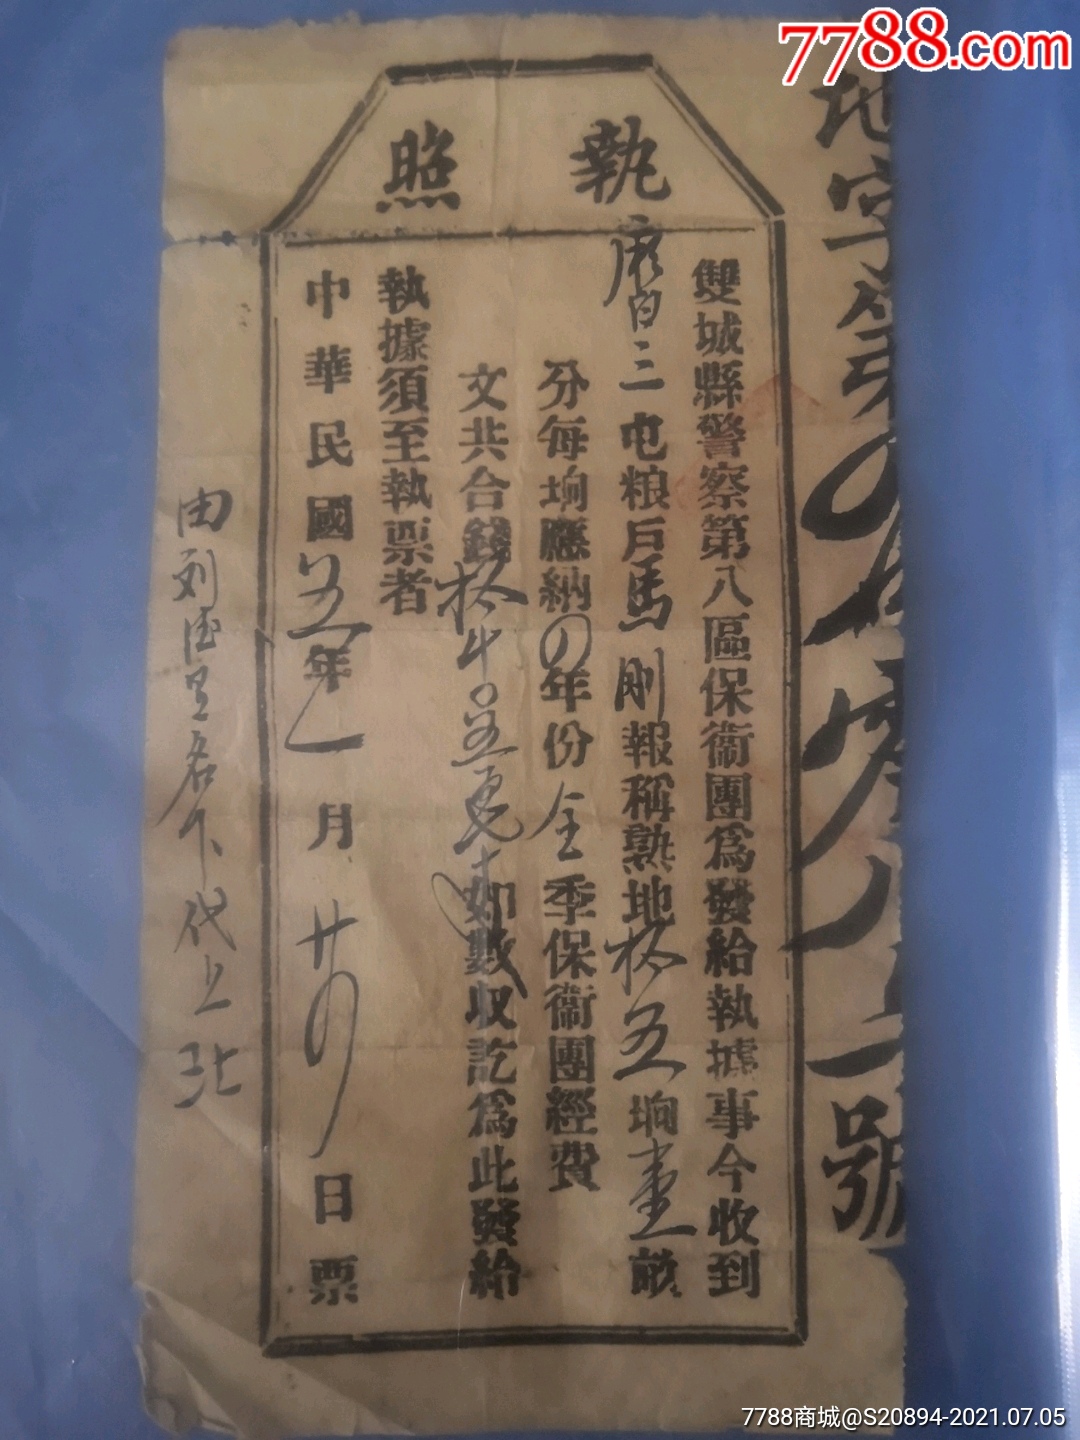 7788.com
執照
雙城縣警察第八區保衞團爲發給執據事今收到
三屯粮戶馬剛報稱熟地拾五垧壹畝
分每垧應納四年份全季保衞團經費
文共合錢拾千如數收訖爲此發給
執據須至執票者
中華民國五年一月廿四日票
由刘名下代上
地字第號
7788商城@S20894-2021.07.05